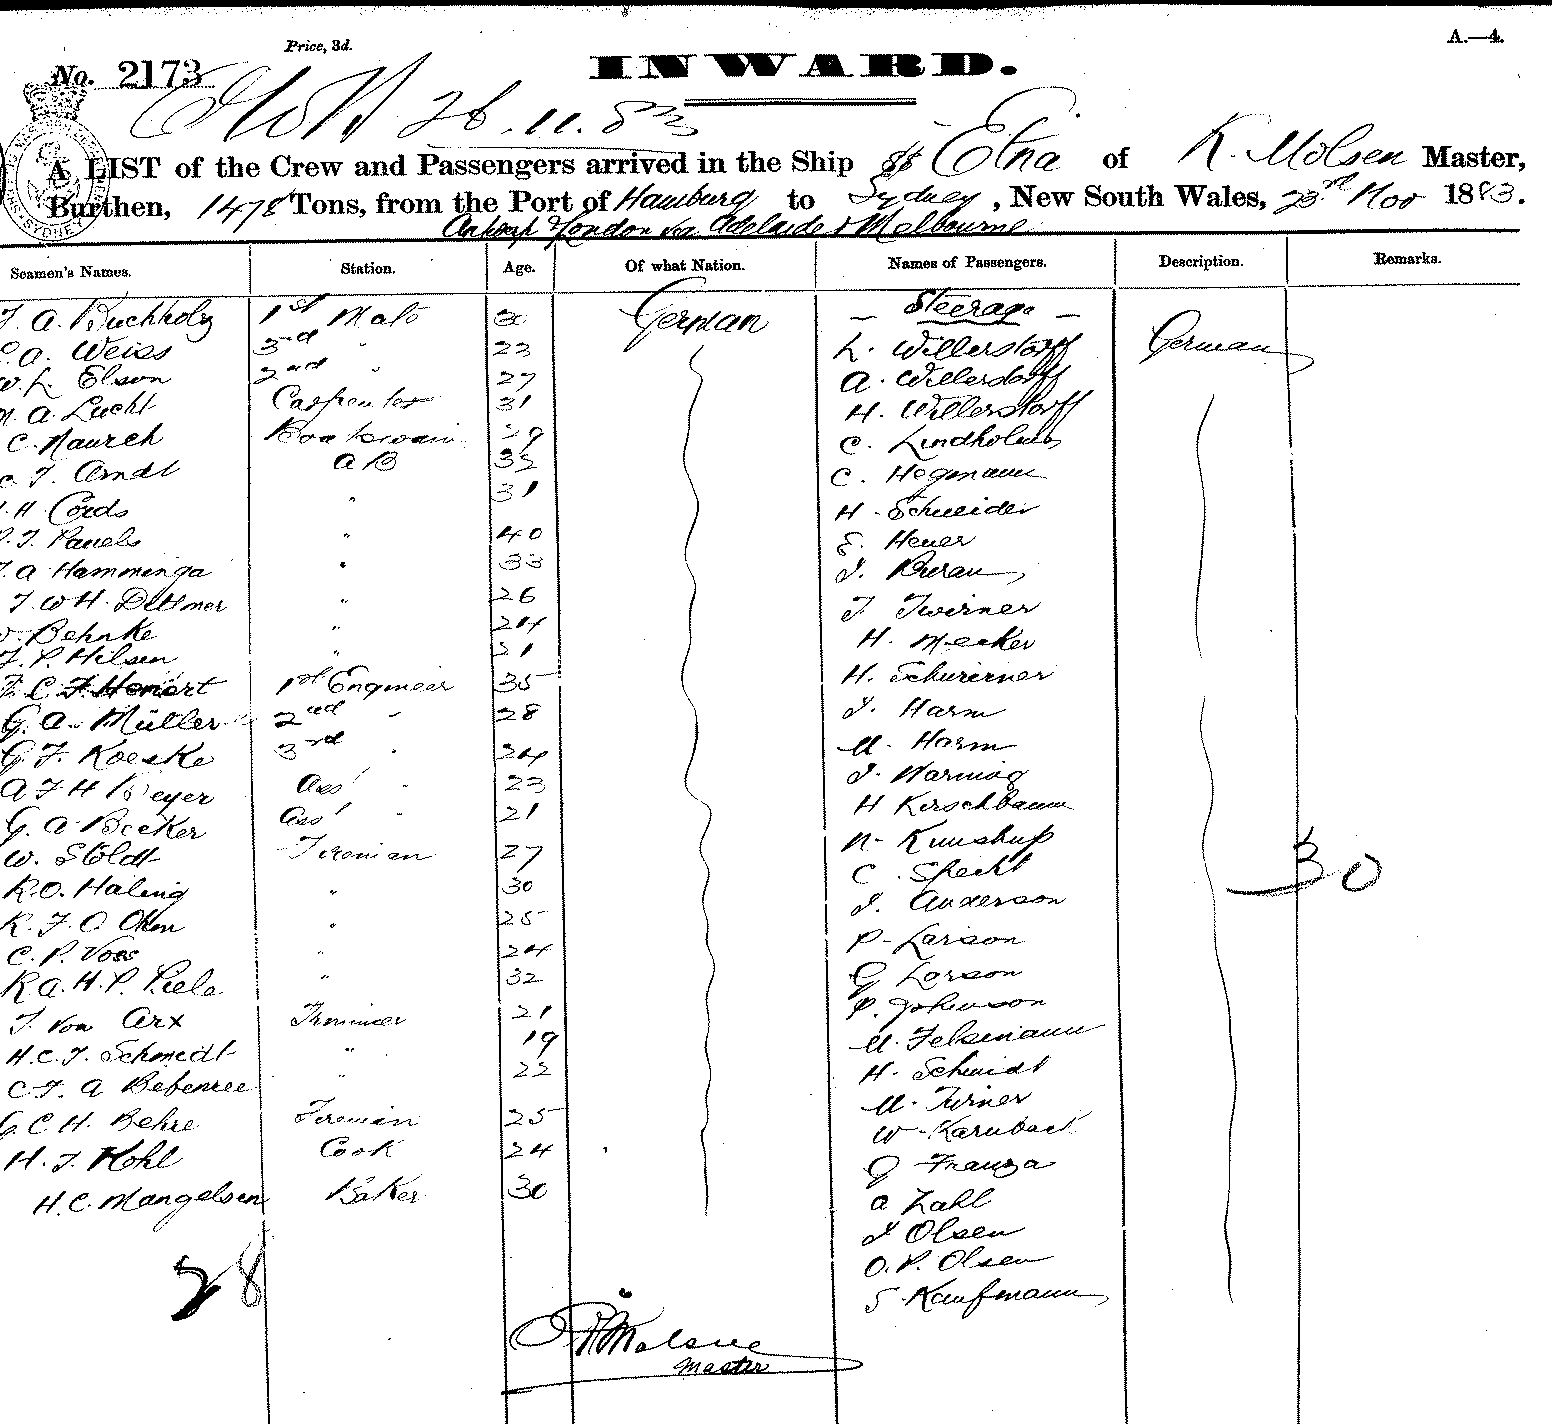 Price, 3d.
A.—4.
No. 2173
INWARD.
26.11.83
A LIST of the Crew and Passengers arrived in the Ship SS Etna of K. Molsen Master,
Burthen, 1478 Tons, from the Port of Hamburg to Sydney, New South Wales, 23rd Nov 1883.
Antwerp & London via Adelaide & Melbourne
Seamen's Names. Station. Age. Of what Nation. Names of Passengers. Description. Remarks.
Steerage
A. Buchholz 1st Mate German
A. Weiss 3rd " 23 L. Willerstorff German
W. L. Elson 2nd " 27 A. Willersdorff
A. Lucht Carpenter 31 H. Willerstorff
C. Maurch Boatswain 29 C. Lindholm
J. Arndt AB 33 C. Hegmann
H. Cords " 31 H. Schneider
J. Pauels " 40 E. Heuer
A Hamminga " 33 J. Buran
J. W H. Dettmer " 26 J. Twirner
Behnke " 24 H. Meeker
J. P. Hilsen " 21 H. Schurirner
C. F. Henort 1st Engineer 35 J. Harm
G. A. Müller 2nd " 28 M. Harm
G. F. Koeske 3rd " 24 J. Warming
A J H Beyer Ass' " 23 H Kirschbaum
G. A Becker Ass' " 21 N. Kunshup
W. Stoldt Fireman 27 C. Specht
R. O. Haling " 30 J. Anderson
K. J. O Olsen " 25 P. Larson
C. P. Voss " 24 G Larson
R. A. H. P. Piele " 32 P. Johnson
J. von Arx Trimmer 21 M. Felsmann
H. C. J. Schmedt " 19 H. Schmidt
C. J. A Bebenree " 22 M. Turner
G C H. Behre Fireman 25 W. Karnback
H. J. Kohl Cook 24 G Franza
H. C. Mangelsen Baker 30 A Zahl
J Olsen
O. P. Olsen
S. Kaufmann
28
30
K Molsen
Master